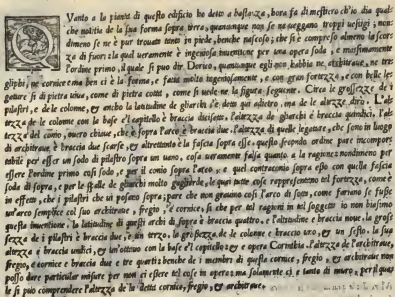 QVanto a la pianta di questo edificio ho detto a bastanza, hora fa di mestiero ch'io dia qual
che notitia de la sua forma sopra terra, quantunque non se ne veggano troppi vestigi; non
dimeno se n'è pur trouato tanto in piede, benche nascoso; che si è compreso almeno la scor
za di fuori: la qual ueramente è ingeniosa inuentione per una opera soda, e maßimamente
l'ordine primo, il quale si puo dir Dorico, quantunque egli non habbia ne architraue, ne tri
gliphi, ne cornice: ma ben ci è la forma, e fatta molto ingeniosamente, e con gran fortezza, e con belle le
gature si di pietra uiua, come di pietra cotta, come si uede ne la figura seguente. Circa le grossezze de i
pilastri, e de le colonne, & ancho la latitudine de gliarchi s'è detto qui adietro, ma de le altezze, dirò. L'al
tezza de le colonne con la base e'l capitello è braccia dicisette, l'altezza de gliarchi è braccia quindici, l'al
tezza del conio, ouero chiaue, ch'è sopra l'arco è braccia due. l'altezza di quelle legature, che sono in luogo
di architraue, è braccia due scarse, & altrettanto è la fascia sopra esse. questo secondo ordine pare incompor
tabile per esser un sodo di pilastro sopra un uano, cosa ueramente falsa quanto a la ragione: nondimeno per
essere l'ordine primo cosi sodo, e per il conio sopra l'arco, e quel contraconio sopra esso con quella fascia
soda di sopra, e per le spalle de gliarchi molto gagliarde, le quai tutte cose rappresentano tal fortezza, come è
in effetto, che i pilastri che ui posano sopra; pare che non grauino cosi l'arco di sotto, come fariano se fusse
un'arco semplice col suo architraue, fregio, e cornice, si che per tal ragioni in tal soggetto io non biasimo
questa inuentione. la latitudine di questi archi di sopra è braccia quattro, e l'altitudine è braccia noue. la gros
sezza de i pilastri è braccia due, & un terzo, la grossezza de le colonne è braccio uno, & un sesto. la sua
altezza è braccia undici, & un'ottauo con la base e'l capitello: & è opera Corinthia. l'altezza de l'architraue,
fregio, e cornice è braccia due e tre quarti: benche de i membri di questa cornice, fregio, & architraue non
posso dare particolar misura per non ci essere tal cose in opera: ma solamente ci è tanto di muro, per il qual
le si può comprendere l'altezza de le dette cornice, fregio, & architraue.